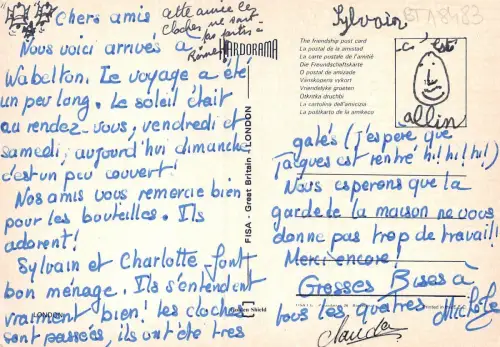 Chers amis
Nous voici arrivés à
Wabelton. Le voyage a été
un peu long. Le soleil était
au rendez-vous, vendredi et
samedi, aujourd'hui dimanche
c'est un peu couvert!
Nos amis vous remercie bien
pour les bouteilles. Ils
adorent!
Sylvain et Charlotte font
bon ménage. Ils s'entendent
vraiment bien! les cloches
sont passées, ils ont été très
cette année les
cloches ne sont
pas parties à
Rome
HARDORAMA
FISA - Great Britain - LONDON
LONDON
Golden Shield
Sylvain
BTA8483
The friendship post card
La postal de la amistad
La carte postale de l'amitié
Die Freundschaftskarte
O postal de amizade
Vänskapens vykort
Vriendelyke groeten
Otkritka druzhbi
La cartolina dell'amicizia
La poŝtkarto de la amikeco
c'est
allin
gatés (j'espère que
Jacques est rentré hi! hi! hi!)
Nous esperons que la
garde de la maison ne vous
donne pas trop de travail!
Merci encore!
Grosses Bises à
tous les quatres
Michèle
Claude